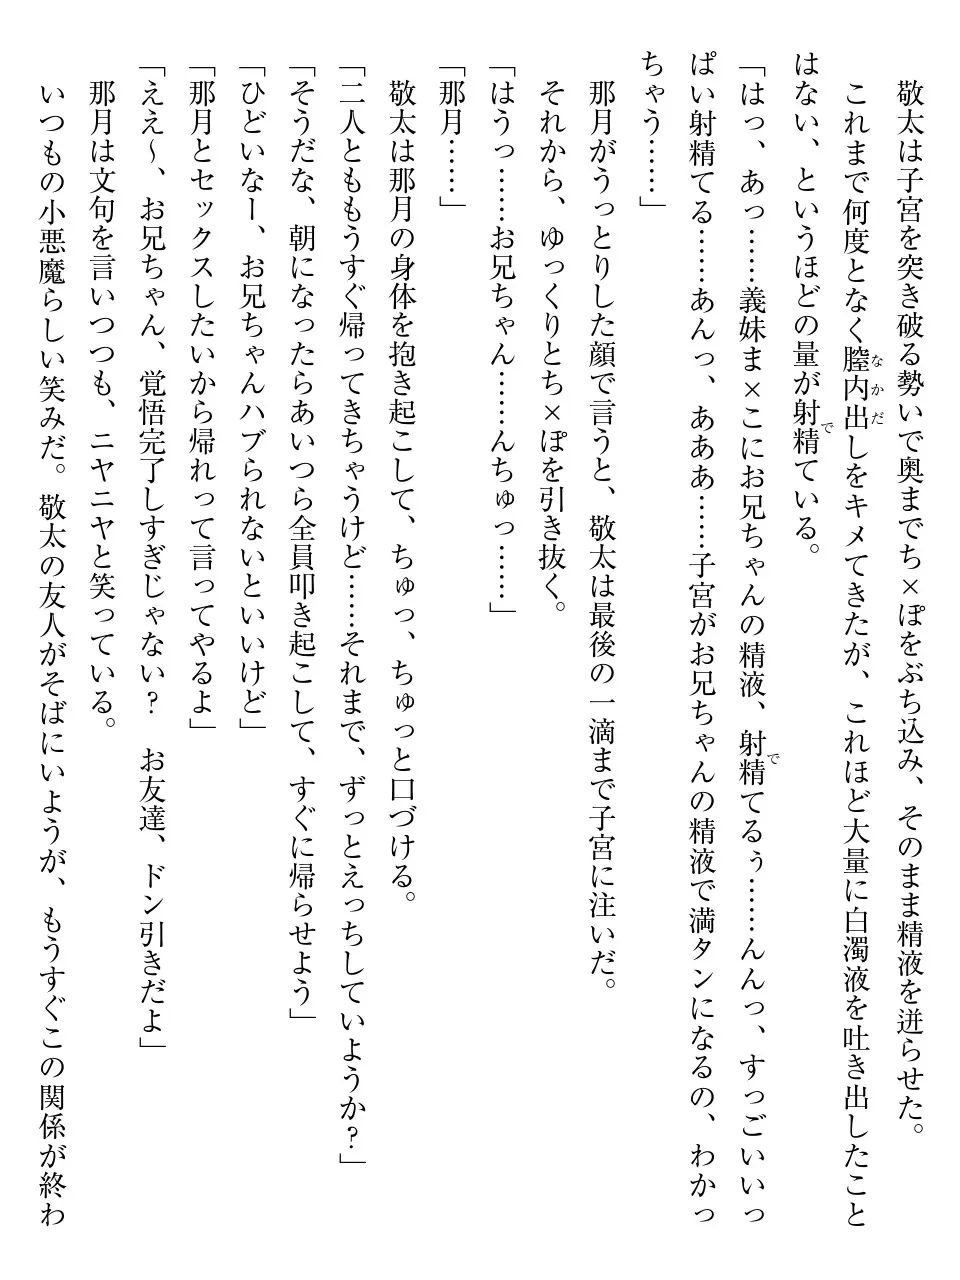 敬太は子宮を突き破る勢いで奥までち×ぽをぶち込み、そのまま精液を迸らせた。
なかだ
これまで何度となく膣内出しをキメてきたが、これほど大量に白濁液を吐き出したこと
で
はない、というほどの量が射精ている。
で
「はっ、あっ……義妹ま×こにお兄ちゃんの精液、射精てるぅ……んんっ、すっごいいっ
ぱい射精てる……あんっ、あああ……子宮がお兄ちゃんの精液で満タンになるの、わかっ
ちゃう……」
那月がうっとりした顔で言うと、敬太は最後の一滴まで子宮に注いだ。
それから、ゆっくりとち×ぽを引き抜く。
「はうっ……お兄ちゃん……んちゅっ……」
「那月……」
敬太は那月の身体を抱き起こして、ちゅっ、ちゅっと口づける。
「二人とももうすぐ帰ってきちゃうけど……それまで、ずっとえっちしていようか?」
「そうだな、朝になったらあいつら全員叩き起こして、すぐに帰らせよう」
「ひどいなー、お兄ちゃんハブられないといいけど」
「那月とセックスしたいから帰れって言ってやるよ」
「ええ〜、お兄ちゃん、覚悟完了しすぎじゃない? お友達、ドン引きだよ」
那月は文句を言いつつも、ニヤニヤと笑っている。
いつもの小悪魔らしい笑みだ。敬太の友人がそばにいようが、もうすぐこの関係が終わ